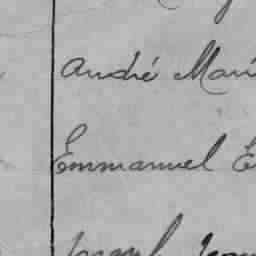 André Mari
Emmanuel E
Joseph Jean